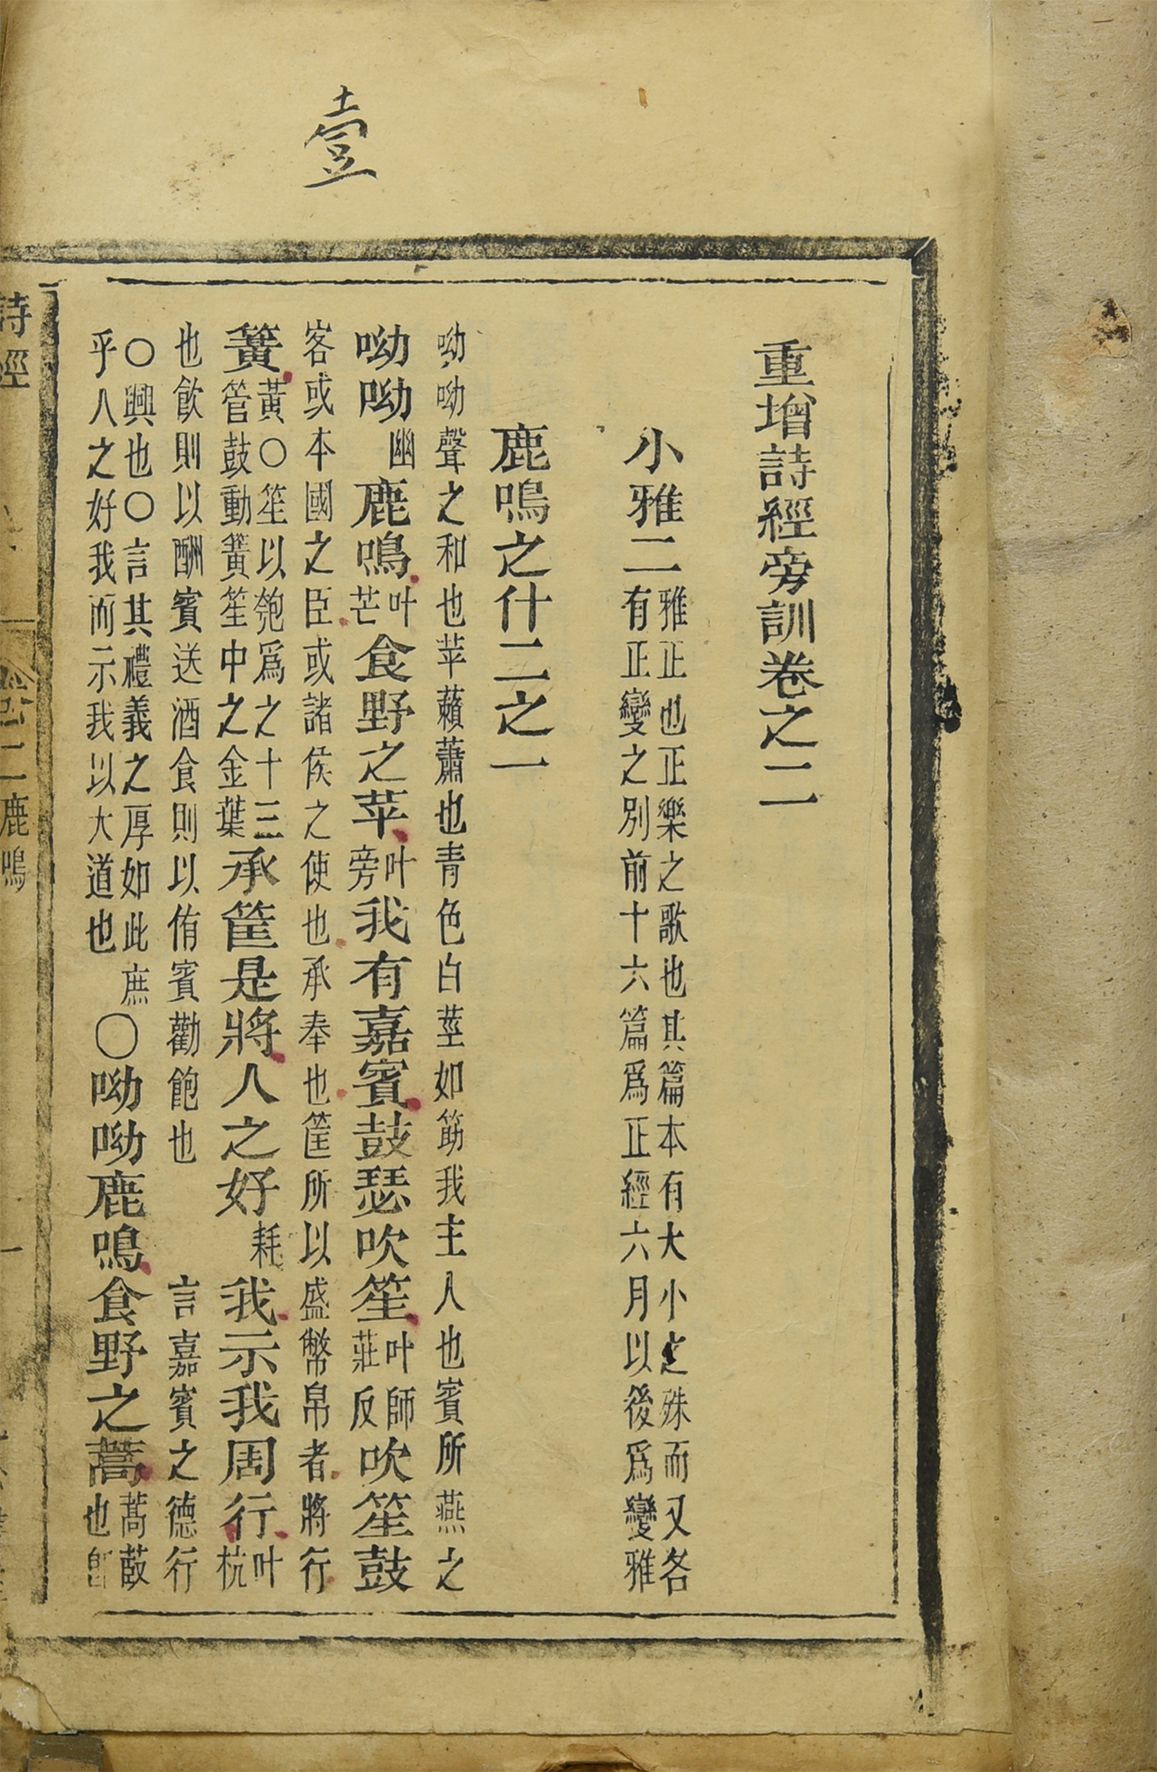 壹
重增詩經旁訓卷之二
小雅二雅正也正樂之歌也其篇本有大小之殊而又各
有正變之別前十六篇爲正經六月以後爲變雅
鹿鳴之什二之一
呦呦聲之和也苹藾蕭也青色白莖如筯我主人也賓所燕之
呦呦幽鹿鳴叶芒食野之苹叶旁我有嘉賓鼓瑟吹笙叶師莊反吹笙鼓
客或本國之臣或諸侯之使也承奉也筐所以盛幣帛者將行
簧黃○笙以匏爲之十三管鼓動簧笙中之金葉承筐是將人之好耗我示我周行叶杭
也飲則以酬賓送酒食則以侑賓勸飽也 言嘉賓之德行
○興也○言其禮義之厚如此庶
乎人之好我而示我以大道也○呦呦鹿鳴食野之蒿蒿菣也
詩經
卷二鹿鳴
一